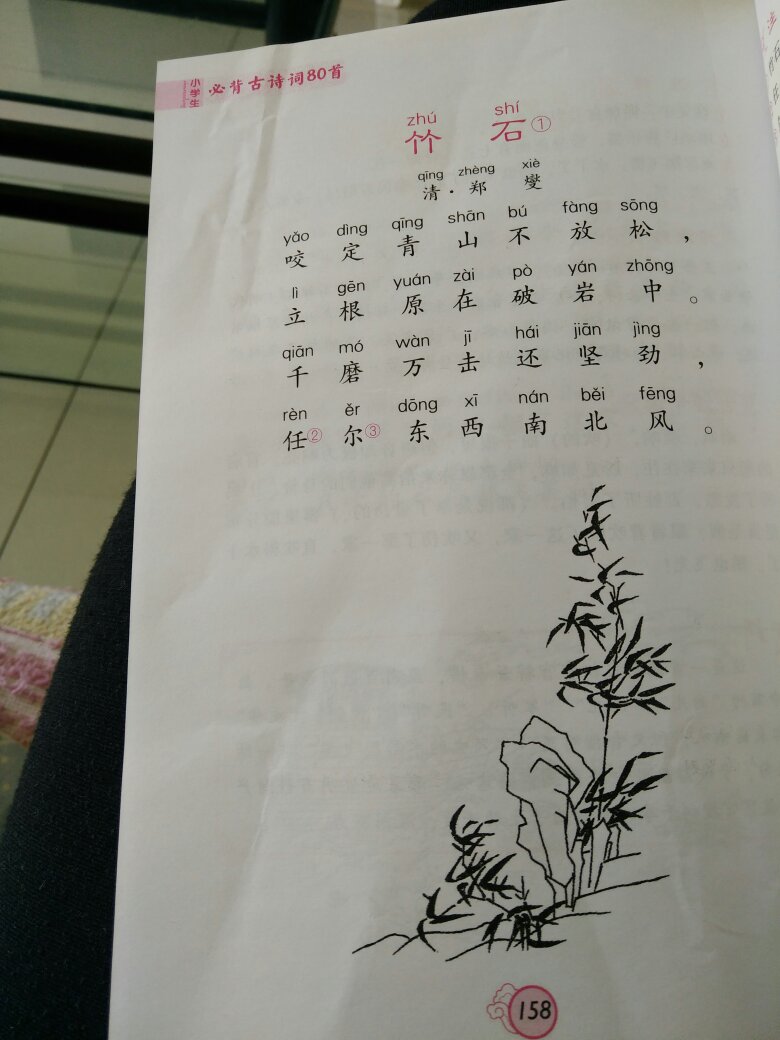 小学生 必背古诗词80首
zhú shí
竹 石①
qīng zhèng xiè
清·郑 燮
yǎo dìng qīng shān bú fàng sōng
咬 定 青 山 不 放 松 ，
lì gēn yuán zài pò yán zhōng
立 根 原 在 破 岩 中 。
qiān mó wàn jī hái jiān jìng
千 磨 万 击 还 坚 劲 ，
rèn ěr dōng xī nán běi fēng
任② 尔③ 东 西 南 北 风 。
158